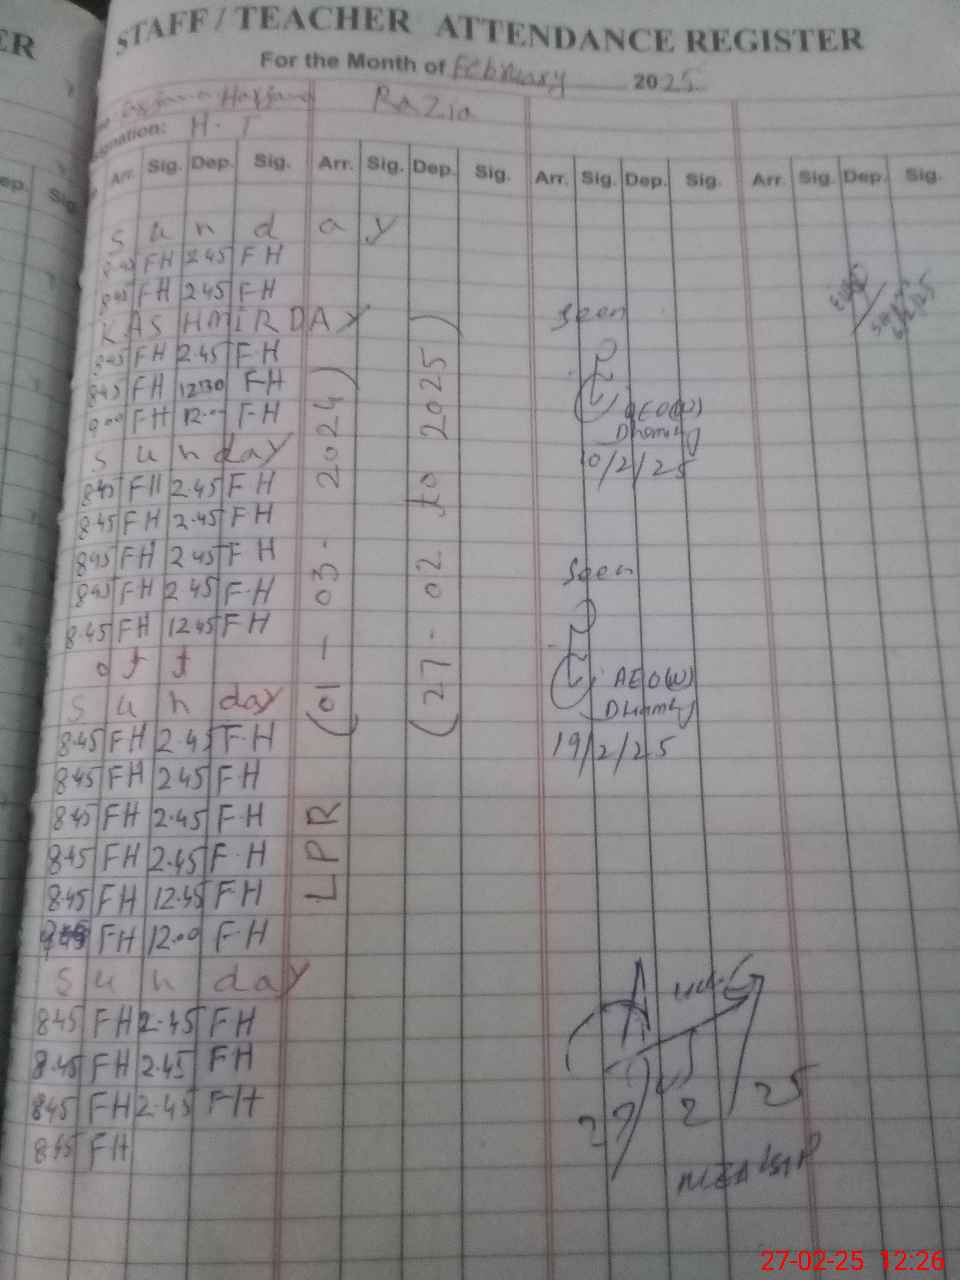 ER
STAFF / TEACHER ATTENDANCE REGISTER
For the Month of February 2025
Razia
gnation: H.T
ep. Sig. Arr. Sig. Dep. Sig. Arr. Sig. Dep. Sig. Arr. Sig. Dep. Sig. Arr. Sig. Dep. Sig.
S u n d a y
8.45 FH 2.45 FH
845 FH 245 F-H
KASHMIR DAY
845 FH 2.45 F-H
845 FH 1230 F-H
900 F-H 12.00 F-H
S u n day
845 FH 2.45 F H
8.45 FH 2.45 F H
845 FH 245 F H
845 FH 245 F-H
8.45 FH 12.45 F H
o f f
S u n day
8.45 FH 2.45 F-H
8.45 FH 245 F-H
8.45 FH 2.45 F-H
845 FH 2.45 F-H
8.45 FH 12.45 F-H
FH 12.00 F-H
S u n day
845 FH 2.45 FH
8.45 FH 2.45 FH
845 FH 2.45 FH
845 FH
LPR (01-03-2024)
(27-02 to 2025)
Seen
AEO(W)
10/2/25
Seen
AEO(W)
19/2/25
27 2 25
27-02-25 12:26